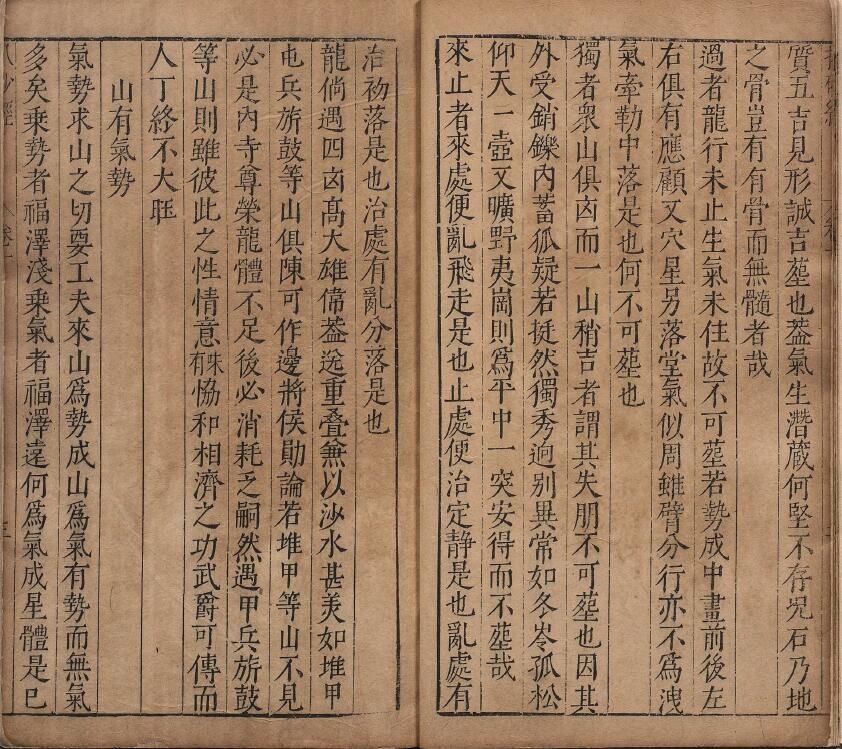 質五吉見形誠吉塟也葢氣生潛藏何堅不存况石乃地
之骨豈有有骨而無髓者哉
過者龍行未止生氣未住故不可塟若勢成中畫前後左
右俱有應顧又穴星另落堂氣似周雖臂分行亦不爲洩
氣牽勒中落是也何不可塟也
獨者衆山俱凶而一山稍吉者謂其失朋不可塟也因其
外受銷鑠內蓄狐疑若挺然獨秀迥别異常如冬岺孤松
仰天一壺又曠野夷崗則爲平中一突安得而不塟哉
來止者來處便亂飛走是也止處便治定静是也亂處有
治初落是也治處有亂分落是也
龍倘遇四凶髙大雄偉葢迯重叠兼以沙水甚羙如堆甲
屯兵旂鼓等山俱陳可作邊將侯勛論若堆甲等山不見
必是內寺尊榮龍體不足後必消耗乏嗣然遇甲兵旂鼓
等山則雖彼此之性情意有殊恊和相濟之功武爵可傳而
人丁終不大旺
山有氣勢
氣勢求山之切要工夫來山爲勢成山爲氣有勢而無氣
多矣乗勢者福澤淺乗氣者福澤遠何爲氣成星體是已
卷一
三